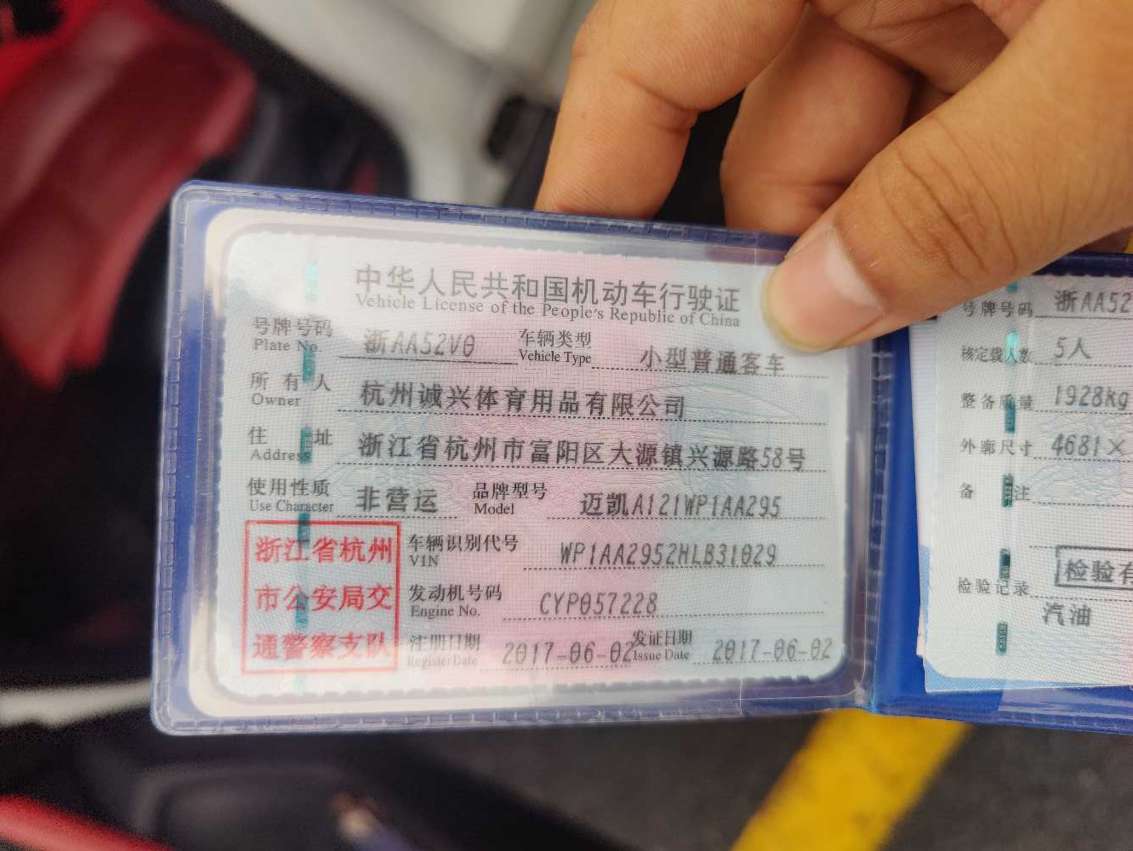 中华人民共和国机动车行驶证
Vehicle License of the People's Republic of China
号牌号码 浙AA52V0 车辆类型 小型普通客车
Plate No. Vehicle Type
所有人 杭州诚兴体育用品有限公司
Owner
住址 浙江省杭州市富阳区大源镇兴源路58号
Address
使用性质 非营运 品牌型号 迈凯A121WP1AA295
Use Character Model
浙江省杭州
市公安局交
通警察支队
车辆识别代号 WP1AA2952HLB31029
VIN
发动机号码 CYP057228
Engine No.
注册日期 2017-06-02 发证日期 2017-06-02
Register Date Issue Date
号牌号码 浙AA52
核定载人数 5人
整备质量 1928kg
外廓尺寸 4681×
备注
检验记录 检验有
汽油